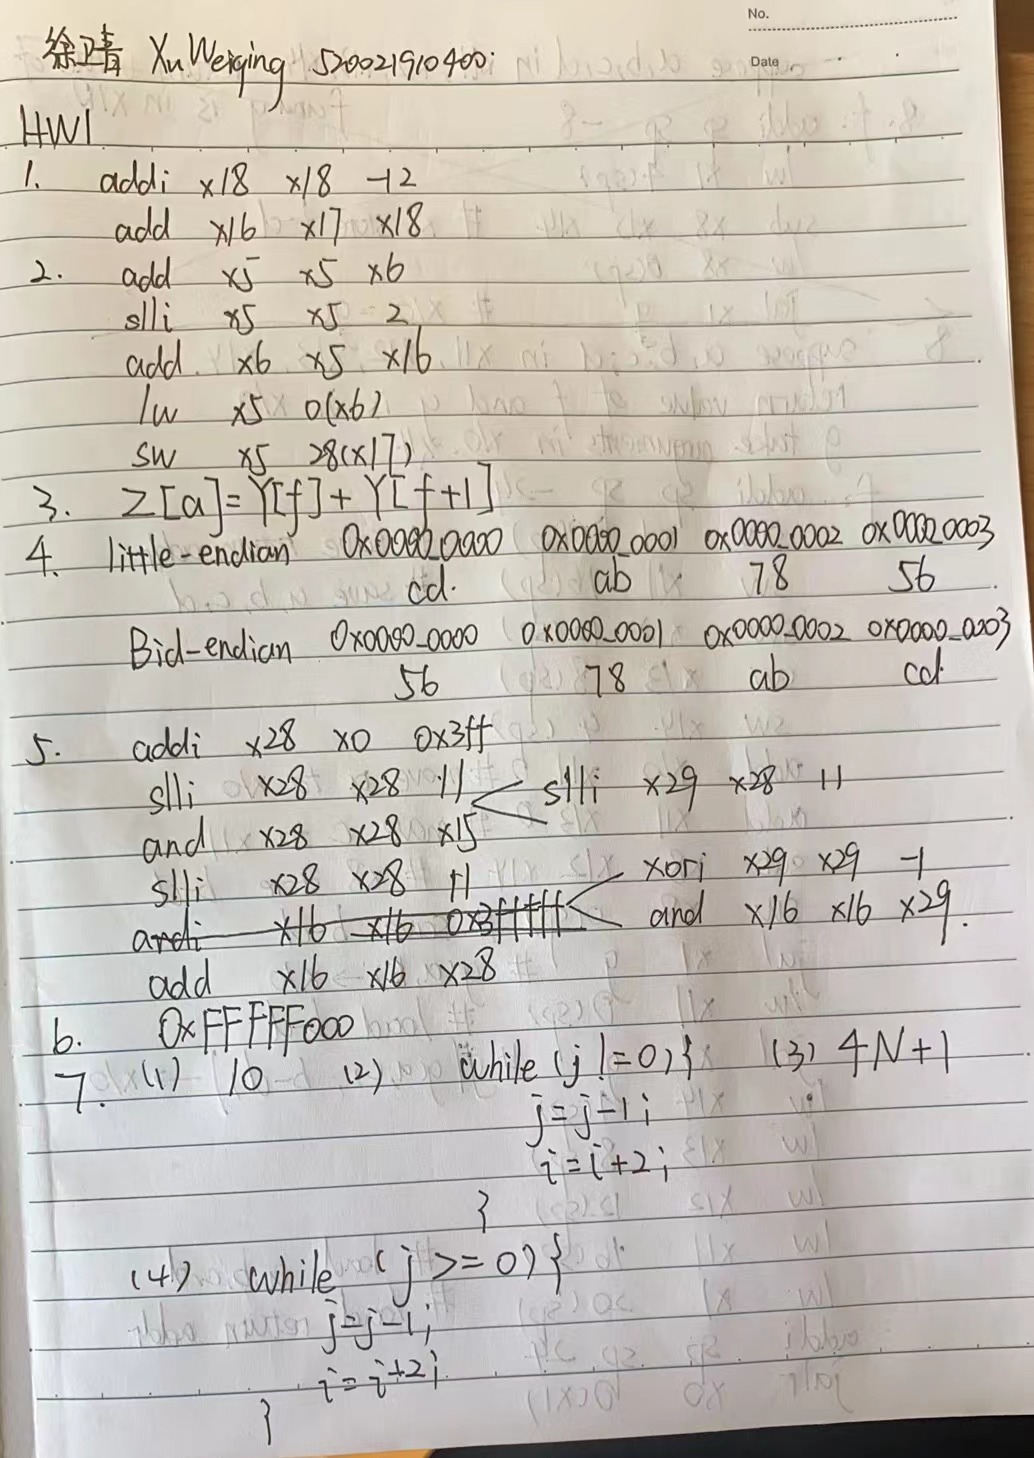 No.
Date
徐卫青 Xu Weiqing 520021910400
HW1
1. addi x18 x18 -12
add x16 x17 x18
2. add x5 x5 x6
slli x5 x5 2
add x6 x5 x16
lw x5 0(x6)
sw x5 28(x17)
3. Z[a]=Y[f]+Y[f+1]
4. little-endian 0x0000_0000 0x0000_0001 0x0000_0002 0x0000_0003
cd ab 78 56
Bid-endian 0x0000_0000 0x0000_0001 0x0000_0002 0x0000_0003
56 78 ab cd
5. addi x28 x0 0x3ff
slli x28 x28 11 slli x29 x28 11
and x28 x28 x15
slli x28 x28 11 xori x29 x29 -1
andi x16 x16 0x3fffff and x16 x16 x29.
add x16 x16 x28
6. 0xFFFFF000
7. (1) 10 (2) while (j!=0){ (3) 4N+1
j=j-1;
i=i+2;
}
(4) while (j>=0){
j=j-1;
i=i+2;
}